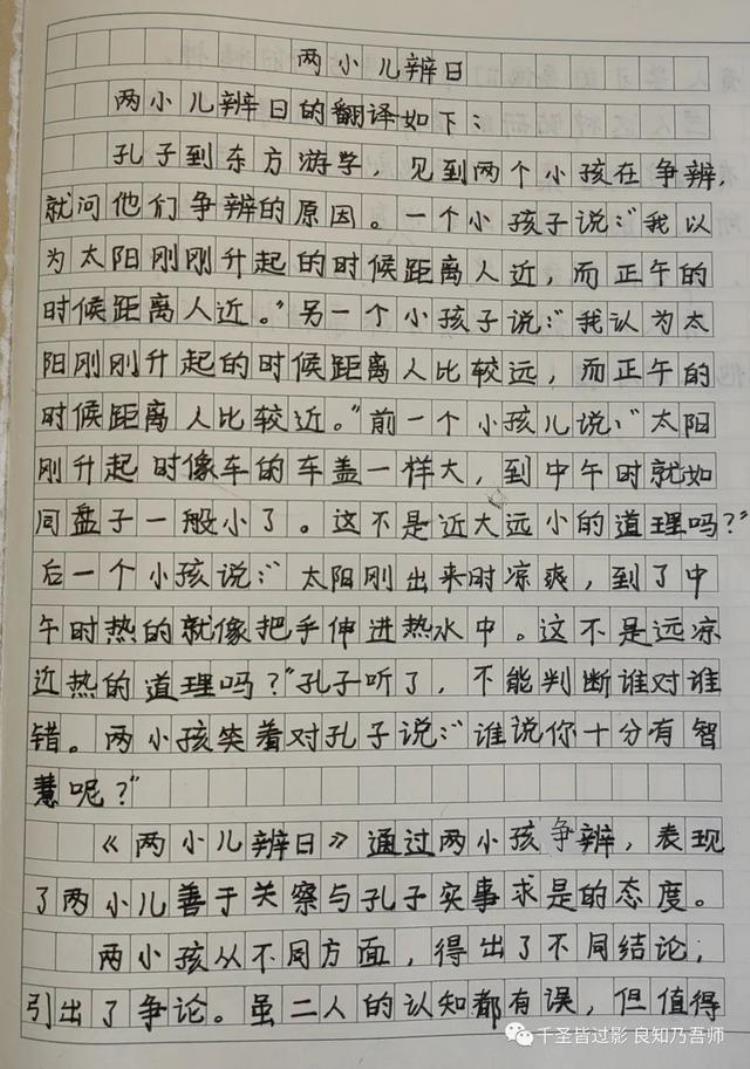 两小儿辨日
两小儿辨日的翻译如下：
孔子到东方游学，见到两个小孩在争辨，
就问他们争辨的原因。一个小孩子说：“我以
为太阳刚刚升起的时候距离人近，而正午的
时候距离人近。”另一个小孩子说：“我认为太
阳刚刚升起的时候距离人比较远，而正午的
时候距离人比较近。”前一个小孩儿说：“太阳
刚升起时像车的车盖一样大，到中午时就如
同盘子一般小了。这不是近大远小的道理吗？”
后一个小孩说：“太阳刚出来时凉爽，到了中
午时热的就像把手伸进热水中。这不是远凉
近热的道理吗？”孔子听了，不能判断谁对谁
错。两小孩笑着对孔子说：“谁说你十分有智
慧呢？”
《两小儿辨日》通过两小孩争辨，表现
了两小儿善于关察与孔子实事求是的态度。
两小孩从不同方面，得出了不同结论，
引出了争论。虽二人的认知都有误，但值得
千圣皆过影 良知乃吾师